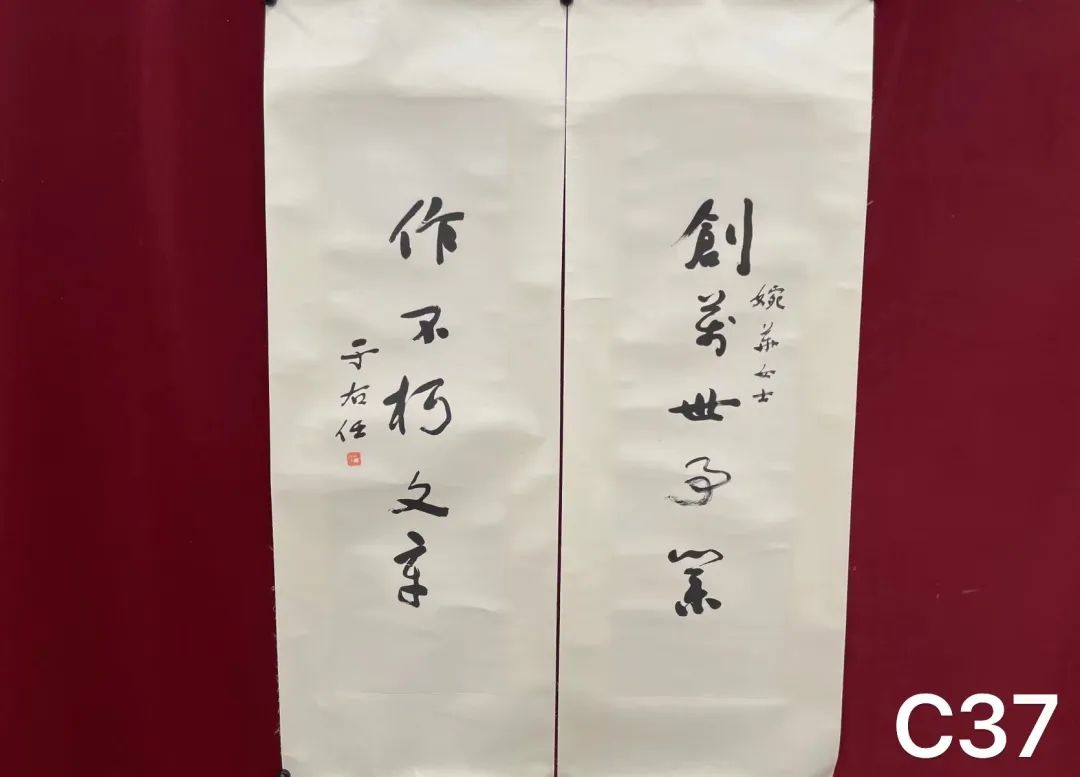 創萬世事業
婉華女士
作不朽文章
于右任
C37